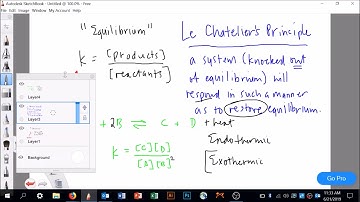 Autodesk SketchBook - Untitled @ 100.0% - Free
File Image My Account Help
"Equilibrium"
k = [products]
[reactants]
Le Chatelier's Principle
a system (knocked out
of equilibrium) will
respond in such a manner
as to restore equilibrium.
+ 2B ⇌ C + D + heat
k = [C][D]
[A][B]²
Endothermic
Exothermic
Layer4
Layer3
Layer1
Background
Go Pro
11:33 AM
6/21/2019